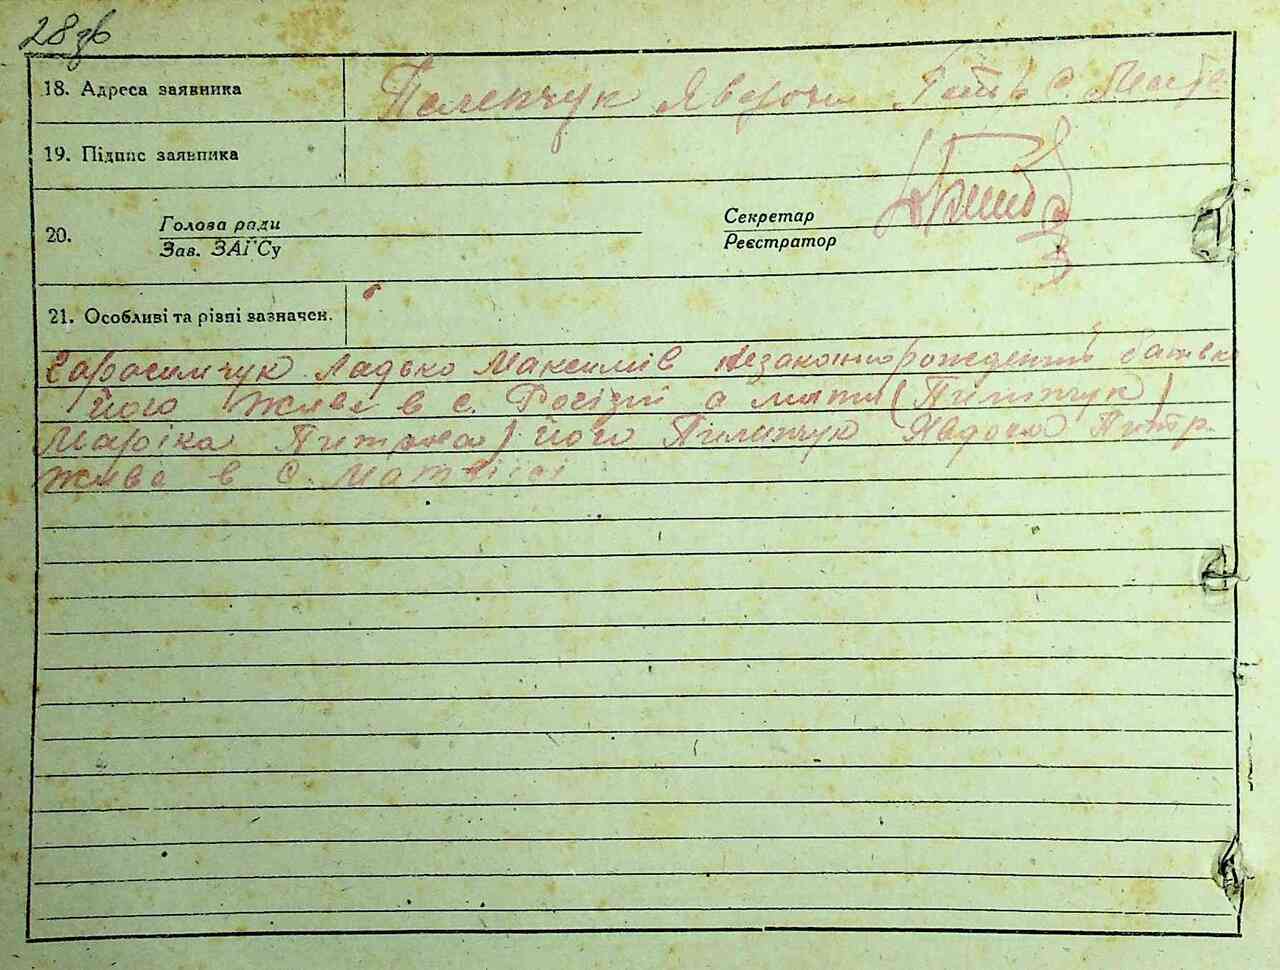 28зв
18. Адреса заявника Пилипчук Явдоха Петр. с. Матв
19. Підпис заявника
20. Голова ради Секретар
Зав. ЗАГСу Реєстратор
21. Особливі та різні зазначен.
Гарасимчук Ладько Максимів незаконнорожденний батько
його живе в с. а мати (Пилипчук)
Маріка його Пилипчук Явдоха Петр.
живе в с. Матвіївці